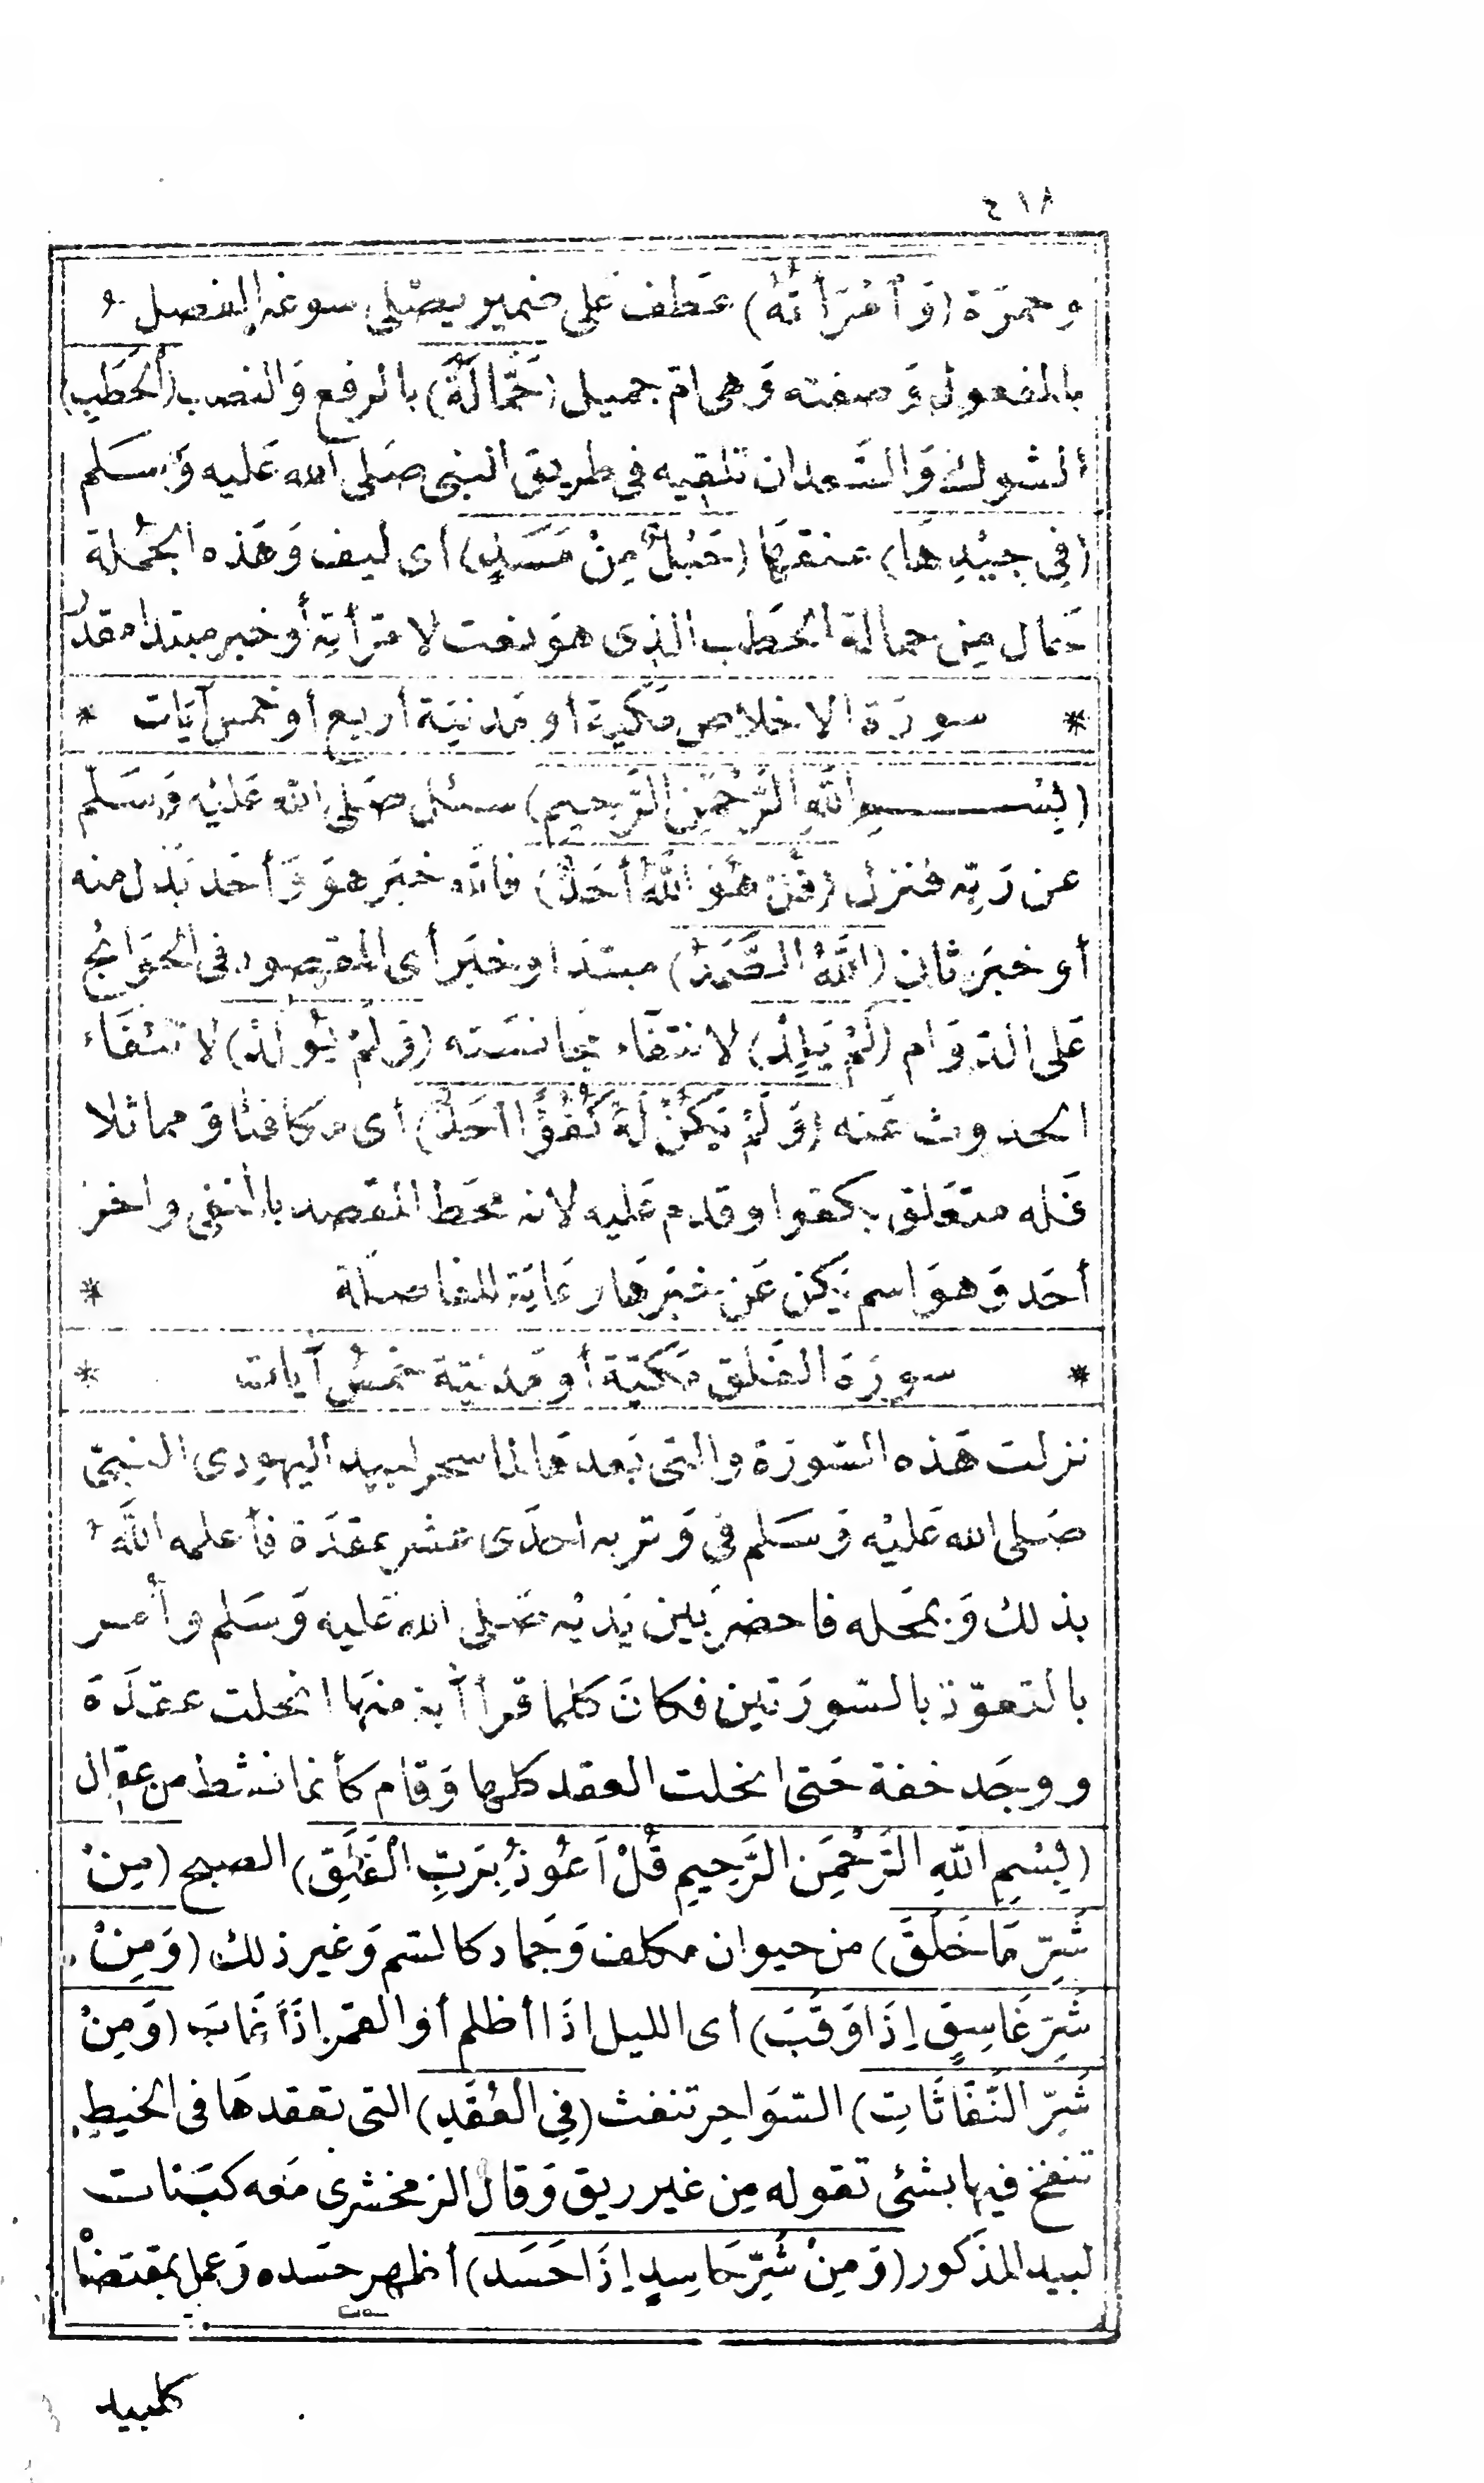 ٤١٨
وحمزة (وَٱمْرَأَتُهُ) عَطف عَلى ضمير يصلى سوغه الفصل
بالمفعول وَصفته وَهى امّ جميل (حَمَّالَةُ) بالرفع وَالنصب (الْحَطَبِ)
الشوك وَالسَّعدان تلقيه فى طريق النبى صَلى الله عَليه وَسَلم
(فِي جِيْدِهَا) عنقهَا (حَبْلٌ مِنْ مَسَدٍ) أى ليف وَهَذه الجُملة
حَال مِن حمالة الحَطب الذِى هوَ نعت لامرَأتِه أو خبر مبتدا مقدر
* سورَة الاخلاص مَكية أو مَدنيَة أربع أو خمس آيَات *
(بِسْمِ اللَّهِ الرَّحْمَنِ الرَّحِيمِ) سئل صَلى الله عَليْه وَسَلّم
عن رَبّه فنزل (قُلْ هُوَ اللَّهُ أَحَدٌ) فالله خبَر هوَ وَأحَد بَدل منه
أو خبَر ثان (اللَّهُ الصَّمَدُ) مبتدَا وخبَر أى المقصود فى الحَوَائج
عَلى الدّوَام (لَمْ يَلِدْ) لانتفَاء مجَانسَته (وَلَمْ يُولَدْ) لانتفَاء
الحدوث عَنه (وَلَمْ يَكُنْ لَهُ كُفُوًا أَحَدٌ) أى مكافئا وَمماثلا
فَله متعَلق بكفوا وقدم عَليه لانه محَط القصد بالنفى واخر
أحَد وَهوَ اسم يَكن عَن خبَرهَا رعَايَة للفاصلَة *
* سورَة الفَلق مَكيّة أو مَدنيّة خمسُ آيات *
نزلت هَذه السّورَة والتى بَعدهَا لما سحر لبيد اليهودى النبىّ
صَلى الله عَليْه وَسَلم فى وَتر به احدَى عشر عقدَة فأعلمه اللَّهُ
بذلك وَبمحَله فاحضر بَين يَديْه صَلى الله عَليه وَسَلم وأُمر
بالتعوّذ بالسّورَتين فكانَ كلما قرأ أية منهَا انحلت عقدَة
ووجَد خفة حَتى انحلت العقد كلها وَقام كأنما نشط من عقال
(بِسْمِ اللهِ الرَّحْمَنِ الرَّحِيمِ قُلْ اَعُوذُ بِرَبِّ الْفَلَقِ) الصبح (مِنْ
شَرِّ مَا خَلَقَ) من حيوان مكلف وَجَماد كالسّم وَغير ذلك (وَمِنْ
شَرِّ غَاسِقٍ اِذَا وَقَبَ) أى الليل اذَا أظلم أو القمَر اذَا غَاب (وَمِنْ
شَرِّ النَّفَّاثَاتِ) السّوَاحر تنفث (فِي الْعُقَدِ) التى تعقدهَا فى الخيط
تنفخ فيها بشئ تقوله مِن غير ريق وَقال الزمخشرى مَعه كبَنات
لبيد المذكور (وَمِنْ شَرِّ حَاسِدٍ اِذَا حَسَد) أظهر حسَده وَعمل بمقتضاه
كلبيد